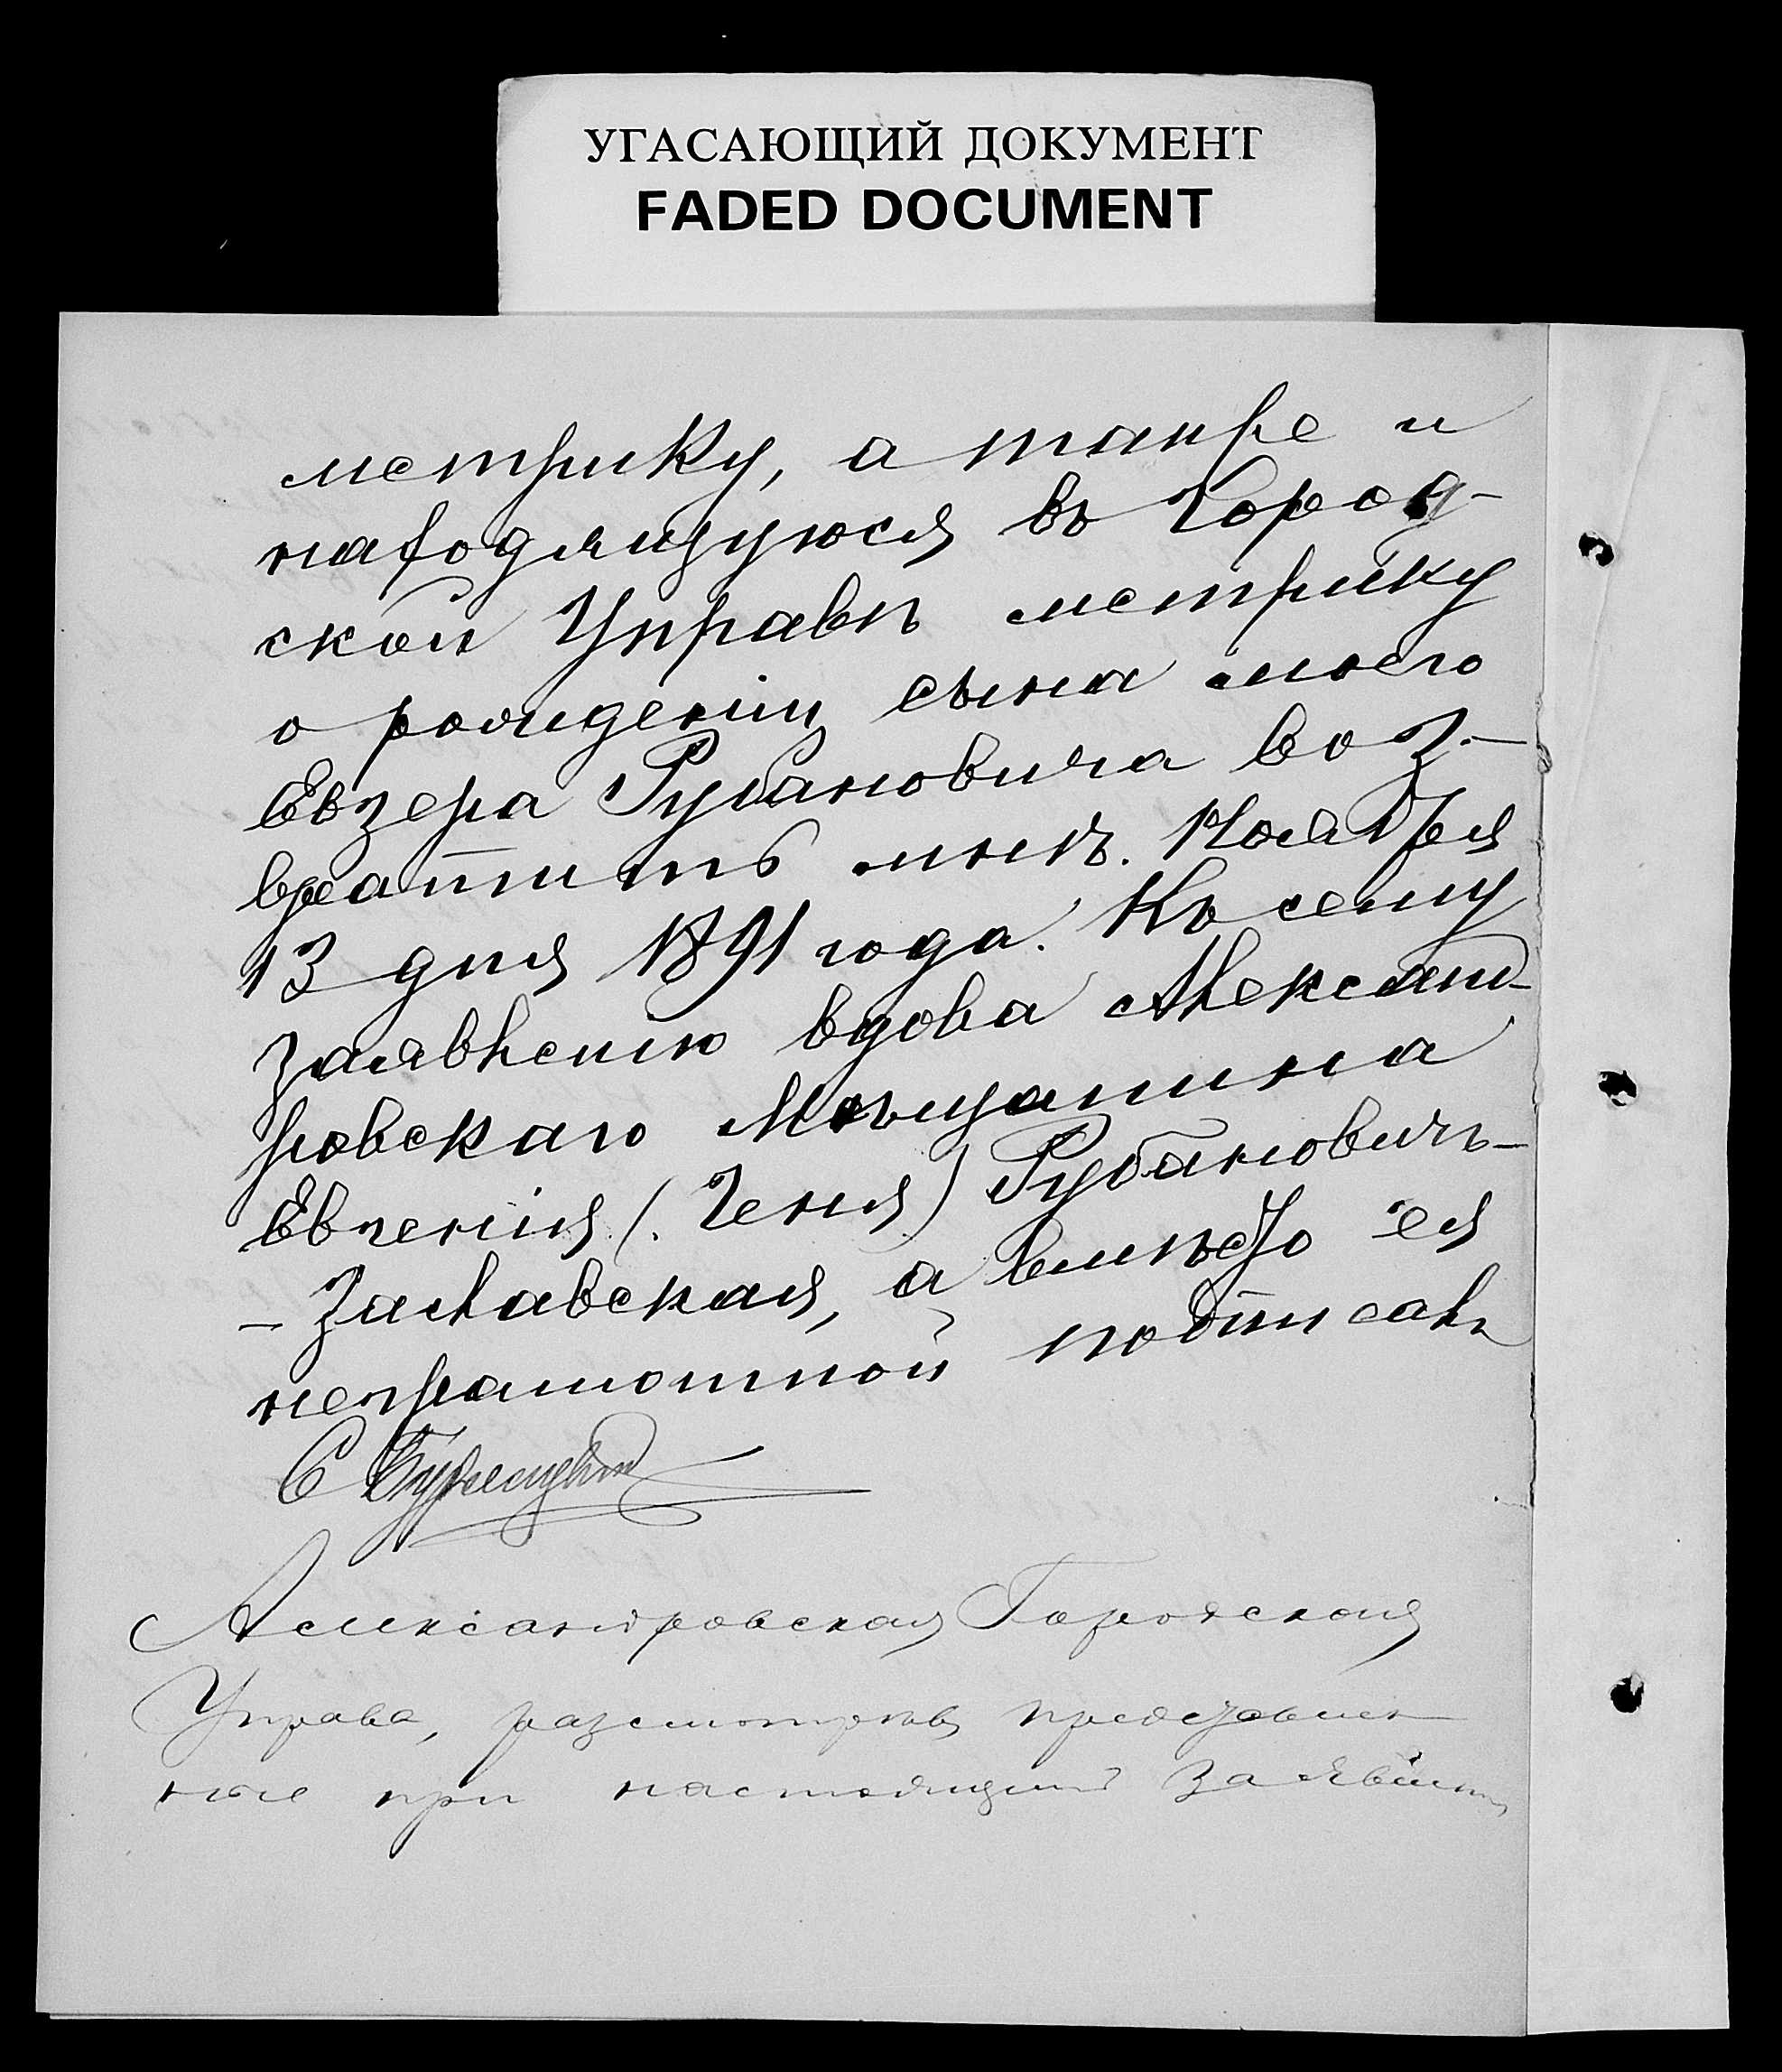 УГАСАЮЩИЙ ДОКУМЕНТ
FADED DOCUMENT
метрику, а также и
находящуюся въ Город-
ской Управѣ метрику
о рожденіи сына моего
Евзера Рубановича воз-
вратить мнѣ. Ноября
13 дня 1891 года. Къ сему
заявленію вдова Александ-
ровскаго Мѣщанина
Евгенія (Геня) Рубановичъ-
- Заславская, а вмѣсто ея
неграмотной подписалъ
С
Александровская Городская
Управа, разсмотрѣвъ представлен
ные при настоящемъ заявленіи